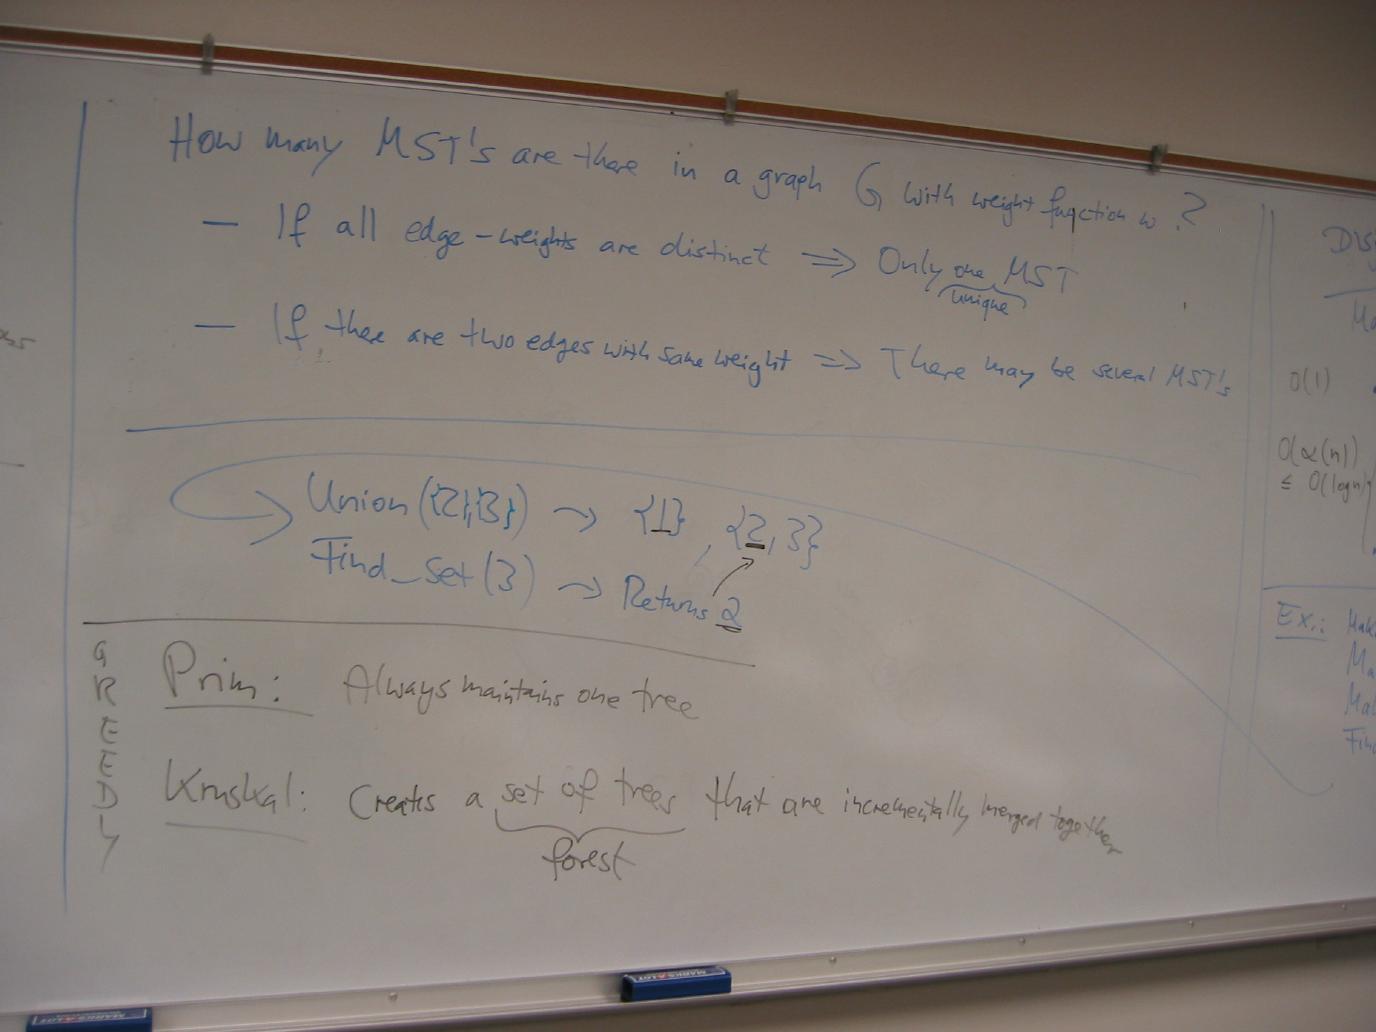 How many MST's are there in a graph G with weight function w ?
— If all edge-weights are distinct ⇒ Only one MST
unique
— If there are two edges with same weight ⇒ There may be several MST's
Union({2},{3}) → {1}, {2,3}
Find_Set(3) → Returns 2
GREEDY
Prim: Always maintains one tree
Kruskal: Creates a set of trees that are incrementally merged together
forest
O(1)
O(α(n))
≤ O(log n)
Ex.:
MARKS-A-LOT